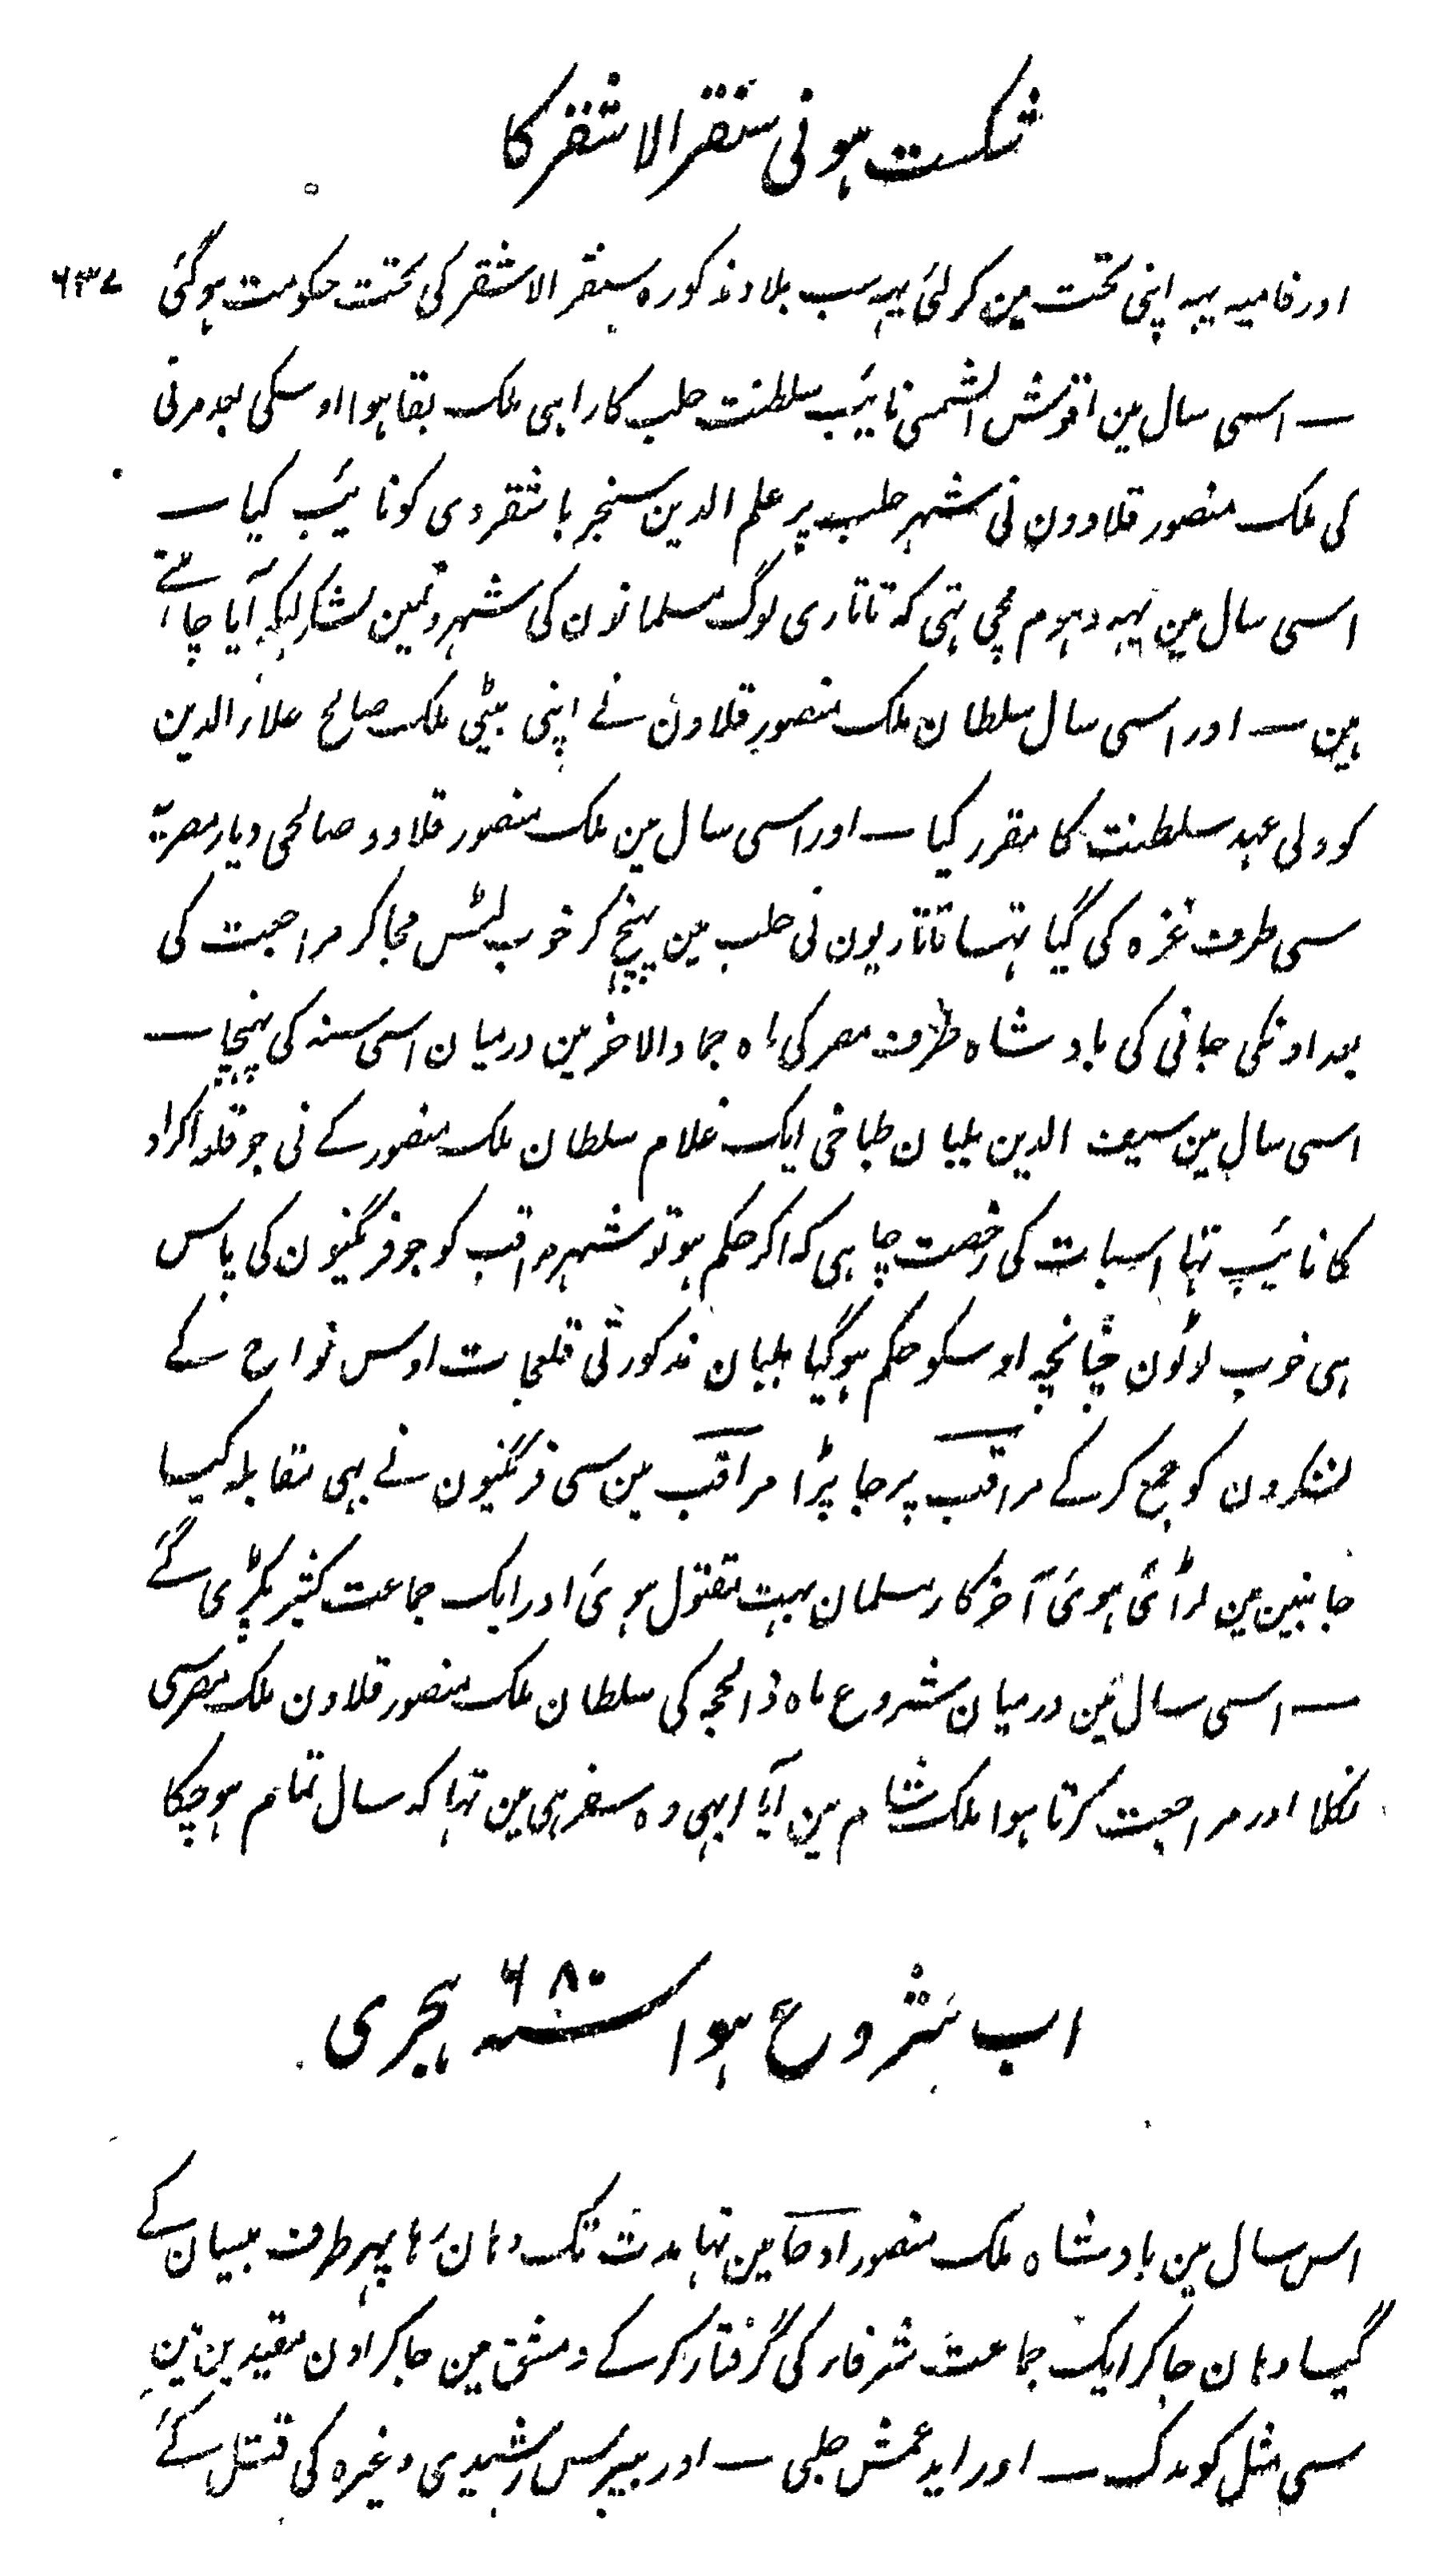 شکست ہونی سنقر الاشقر کا
۶۳۷
اور فامیہ یہہ اپنی تحت مین کر لئی یہہ سب بلاد مذکورہ سنقر الاشقر کی تحت حکومت ہوگئی
ـــ اسی سال مین اقوش الشمسی نائیب سلطنت حلب کا راہی ملک بقا ہوا اوسکی بعد مرنی
کی ملک منصور قلاوون نی شہر حلب پر علم الدین سنجر باشقردی کو نائیب کیا ـــ
اسی سال مین یہہ دہوم مچی تہی کہ تاتاری لوگ مسلمانون کی شہرونمین لشکر لیکر آیا چاہتے
ہین ـــ اور اسی سال سلطان ملک منصور قلاون نے اپنی بیٹی ملک صالح علاء الدین
کو ولی عہد سلطنت کا مقرر کیا ـــ اور اسی سال مین ملک منصور قلاوو صالحی دیار مصریہ
سی طرف غزہ کی گیا تہا تاتاریون نی حلب مین پہنچ کر خوب لٹس مچا کر مراجعت کی
بعد اونکی جانی کی بادشاہ طرف مصر کی ماہ جماد الاخر مین درمیان اسی سنہ کی پہنچا ـــ
اسی سال مین سیف الدین بلبان طباخی ایک غلام سلطان ملک منصور کے نی جو قلعہ اکراد
کا نائیب تہا اسبات کی رخصت چاہی کہ اگر حکم ہو تو شہر مراقب کو جو فرنگیون کی پاس
ہی خوب لوٹون چنانچہ اوسکو حکم ہوگیا بلبان مذکور نی قلعجات اوس نواح کے
لشکرون کو جمع کرکے مراقب پر جا پڑا مراقب مین سی فرنگیون نے بہی مقابلہ کیا
جانبین مین لڑائی ہوئی آخر کار مسلمان بہت مقتول ہوئی اور ایک جماعت کثیر پکڑی گے
ـــ اسی سال مین درمیان شروع ماہ ذالحجہ کی سلطان ملک منصور قلاون ملک مصر سی
نکلا اور مراجعت کرتا ہوا ملک شام مین آیا ابہی وہ سفر ہی مین تہا کہ سال تمام ہوچکا
اب شروع ہوا سنہ ۶۸۰ ہجری
اس سال مین بادشاہ ملک منصور اوحا مین تہا مدت تک وہان رہا پہر طرف بیسان کے
گیا وہان جا کر ایک جماعت شرفاء کی گرفتار کرکے دمشق مین جا کر اون مقیدین مین
سی مثل کوندک ـــ اور ایدغمش حلبی ـــ اور بیبرس رشیدی وغیرہ کی قتل کئے